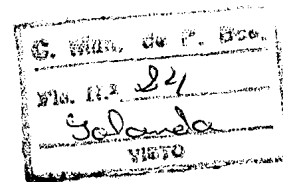 C. Mun. de P. Bco.
Fls. N.º 24
Jolanda
VISTO